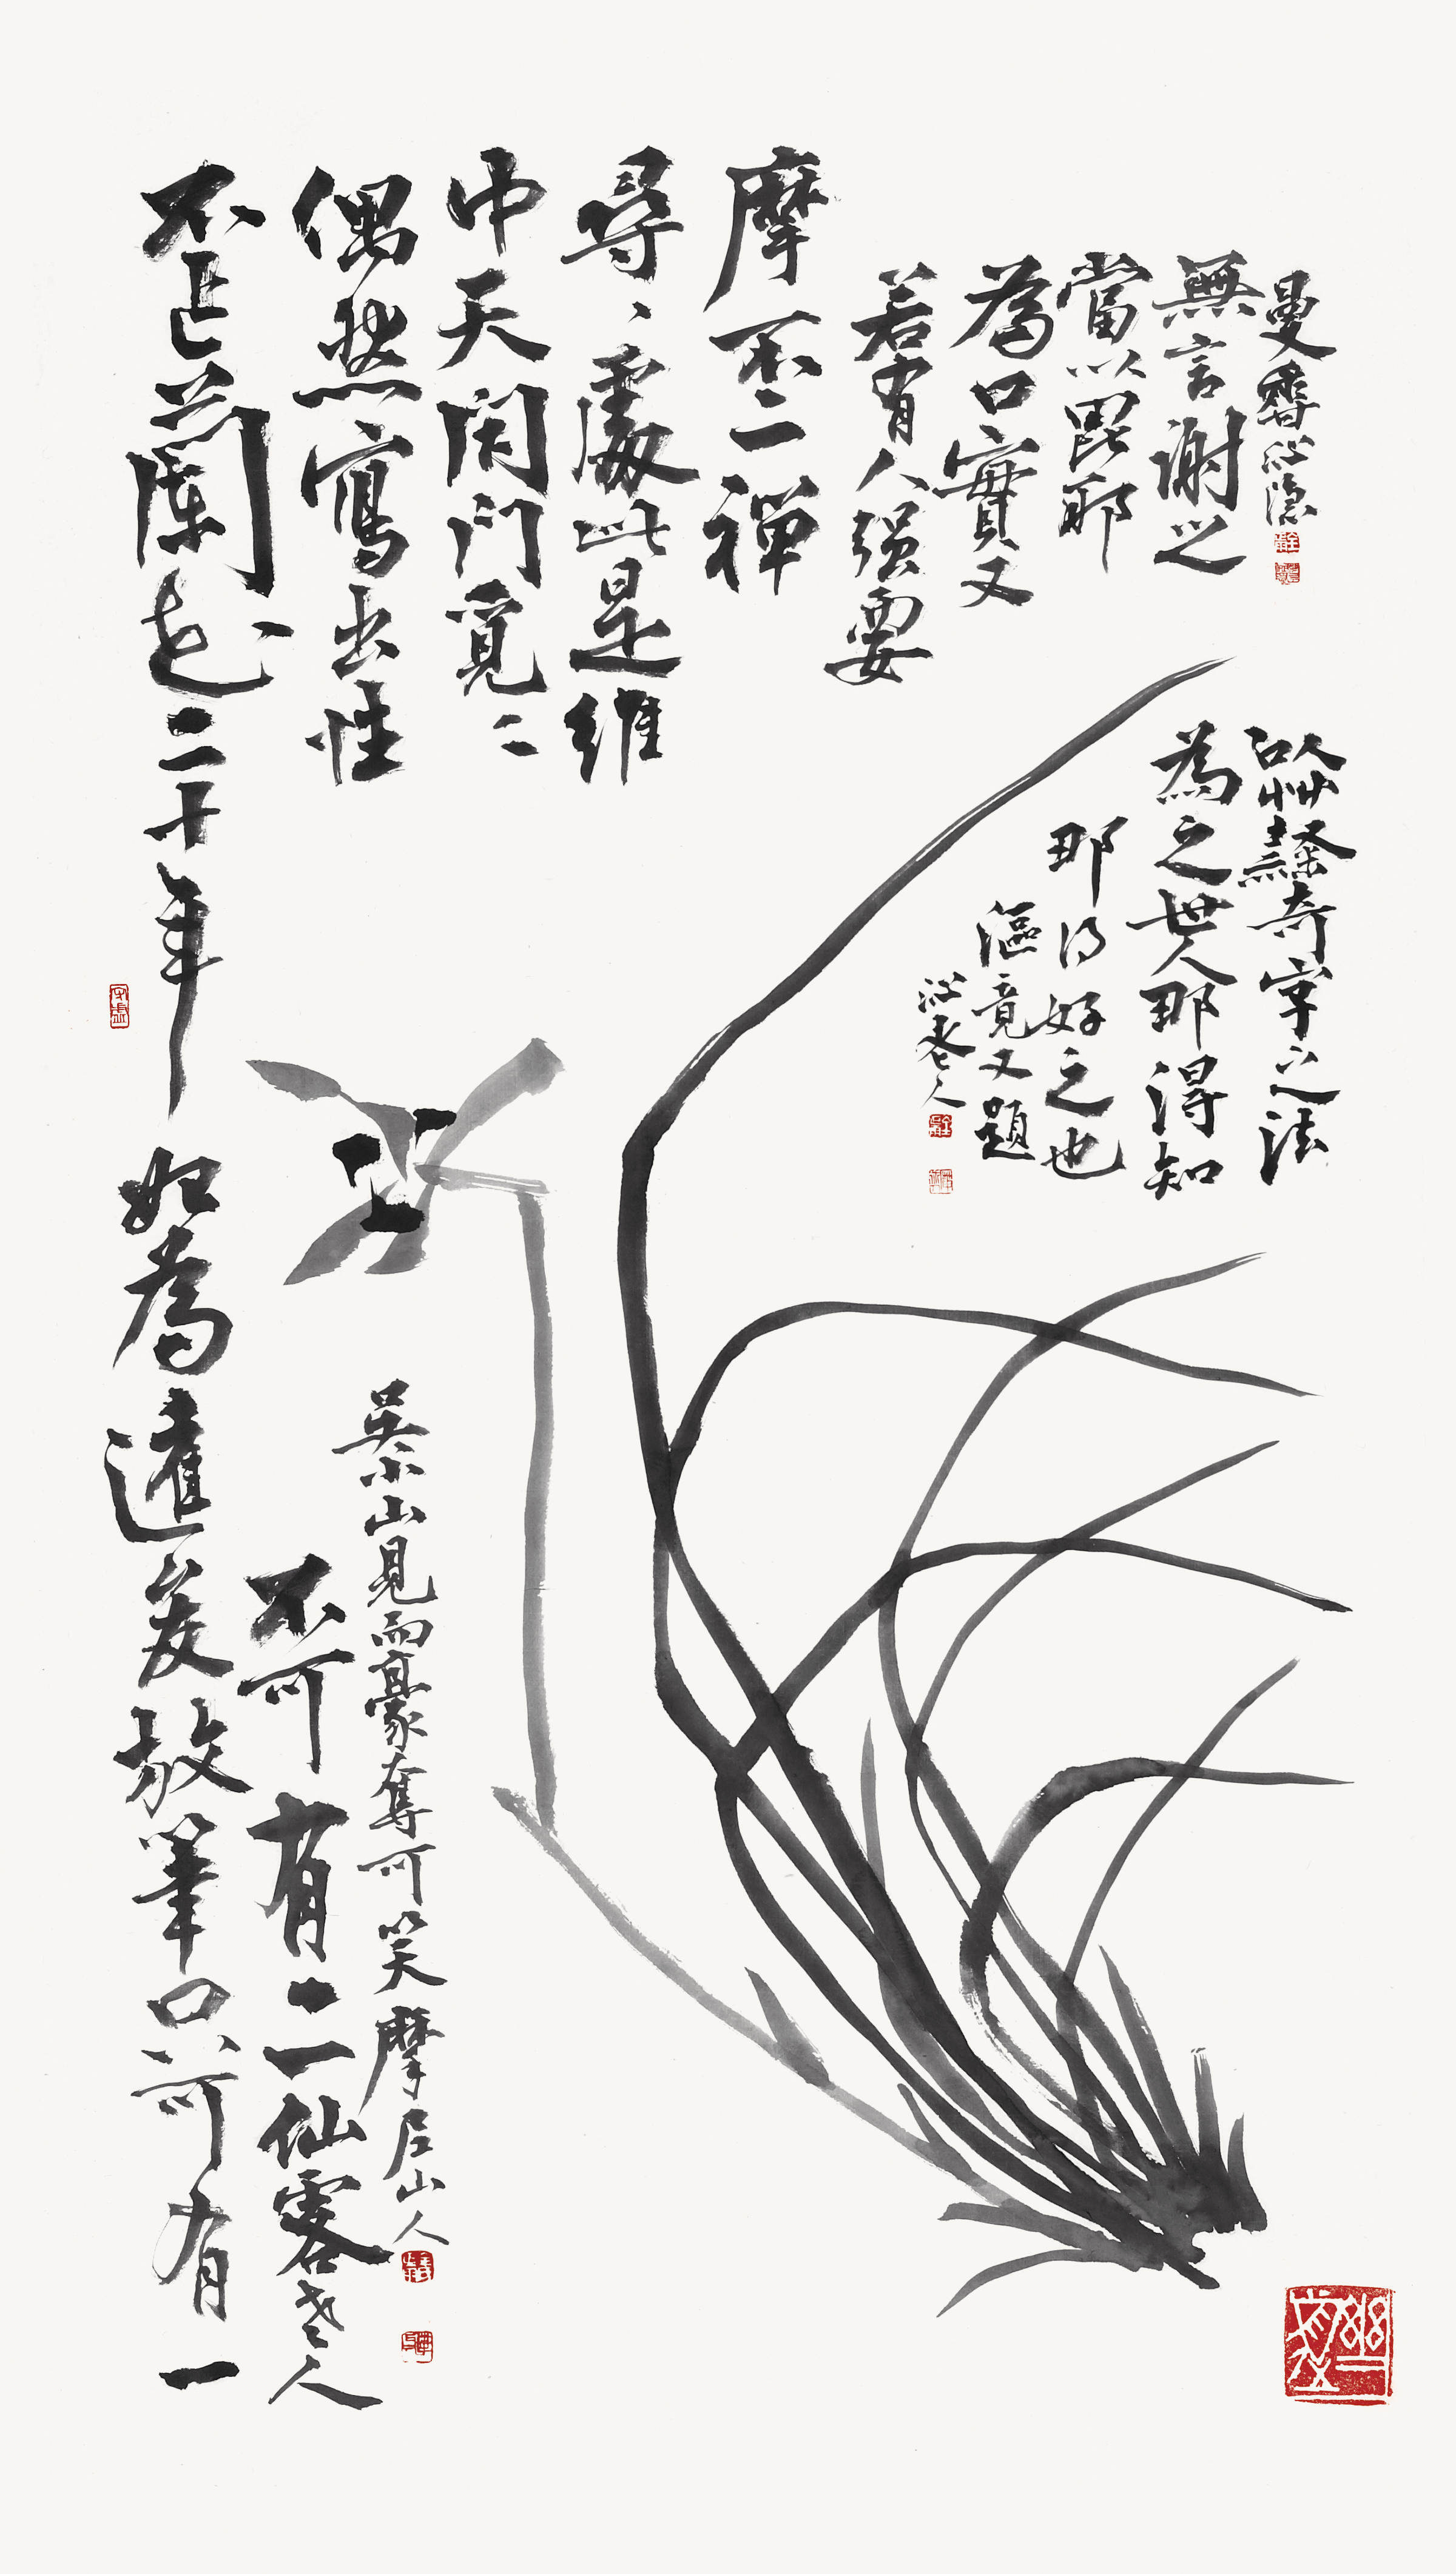 不乍蘭花二十年
偶然寫出性
中天閉門覓々
尋々處此是維
摩不二禪
若有人强要
為口實又
當以毘耶
無言謝之
曼香沁隱
以艸隸奇字之法
為之世人那得知
那得好之也
漚竟又題
沁老人
始為達夋放筆只可有一
不可有二仙客老人
吴小山見而豪奪可笑摩尼山人